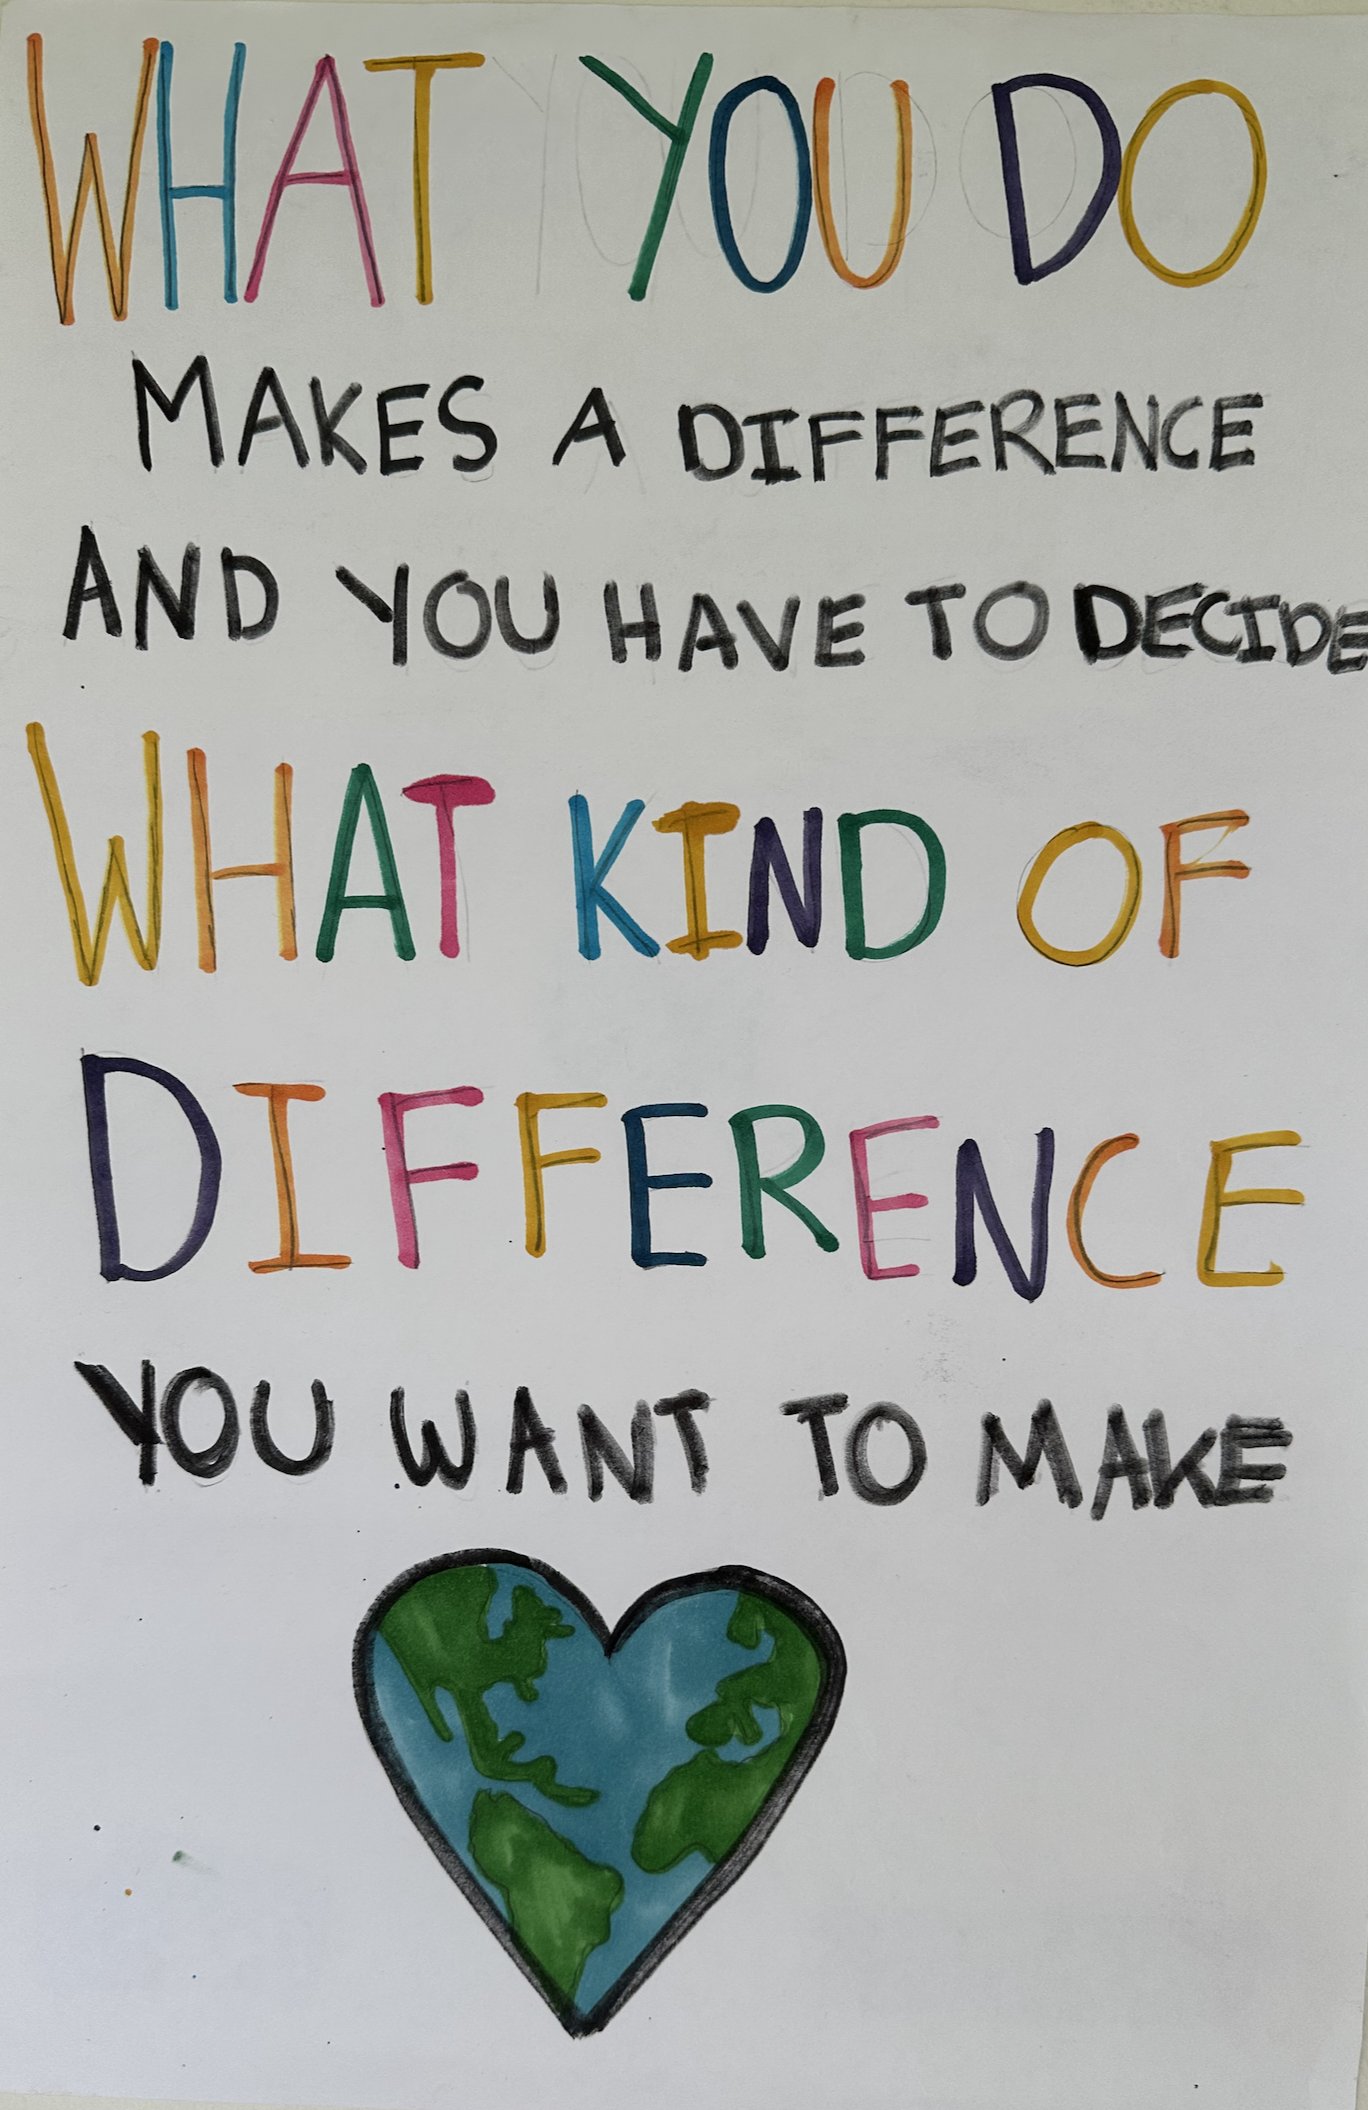 WHAT YOU DO
MAKES A DIFFERENCE
AND YOU HAVE TO DECIDE
WHAT KIND OF
DIFFERENCE
YOU WANT TO MAKE